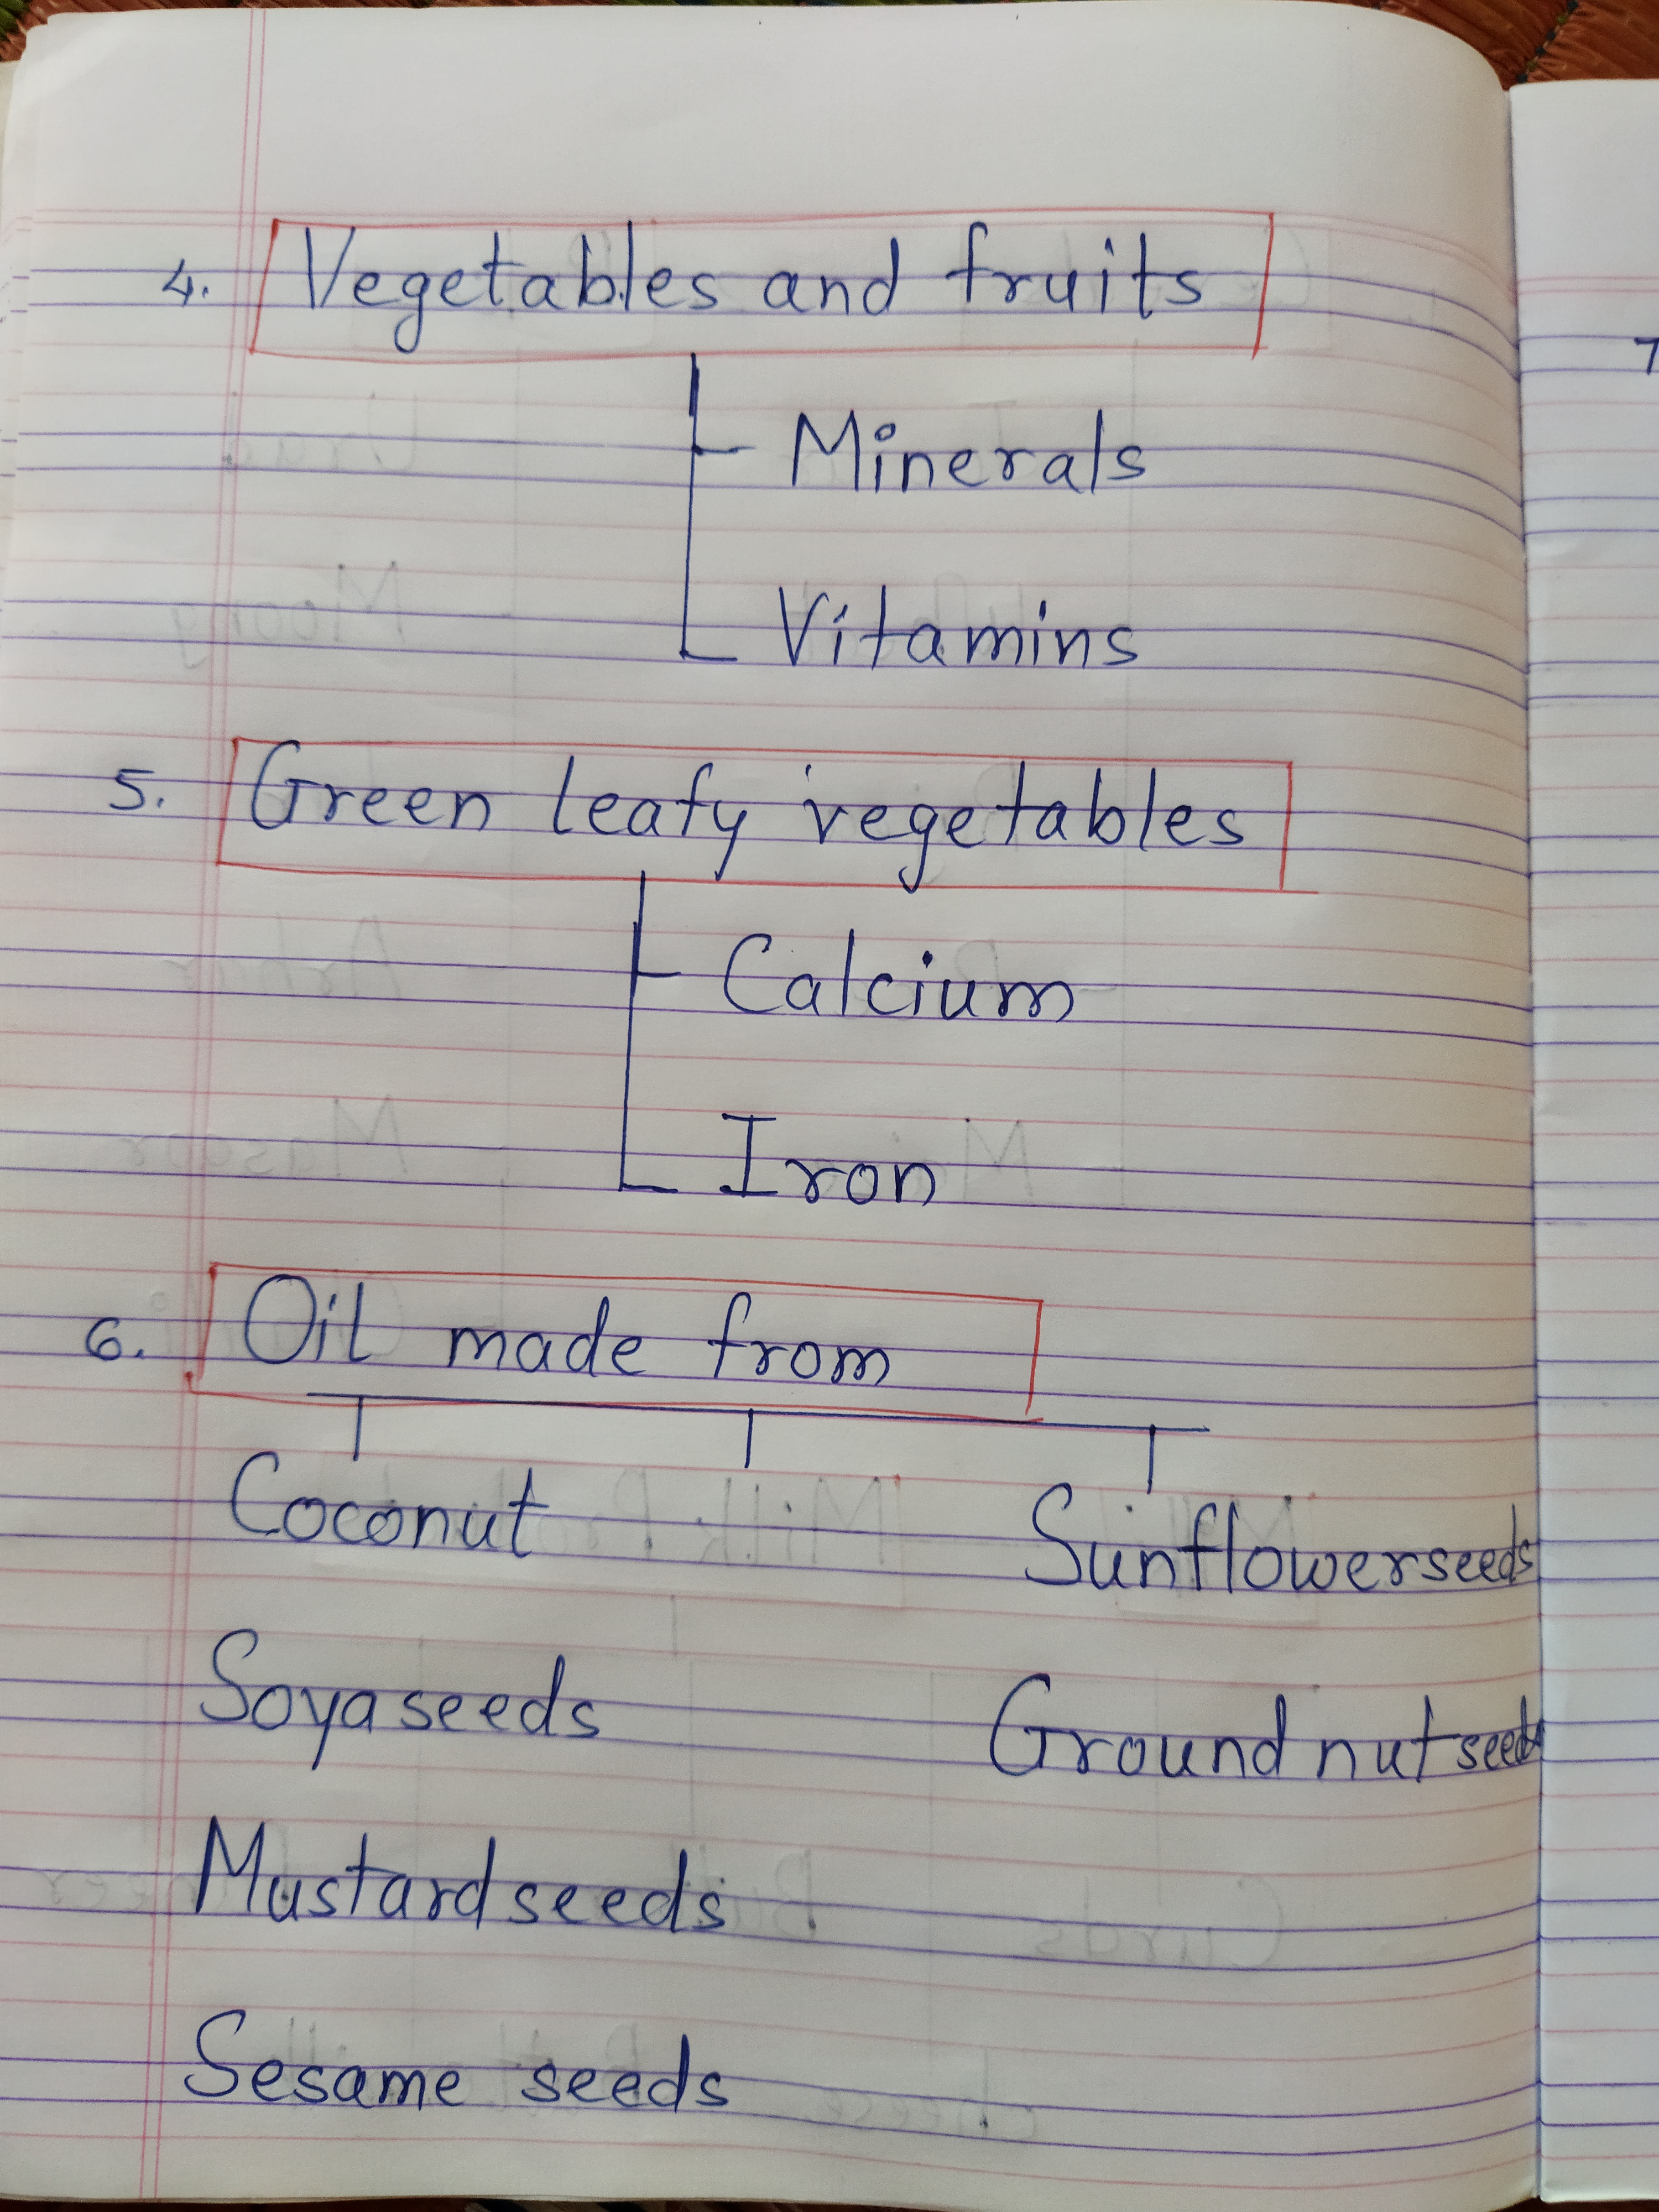 4. Vegetables and fruits
Minerals
Vitamins
5. Green leafy vegetables
Calcium
Iron
6. Oil made from
Coconut
Sunflowerseeds
Soyaseeds
Ground nut seeds
Mustardseeds
Sesame seeds
7